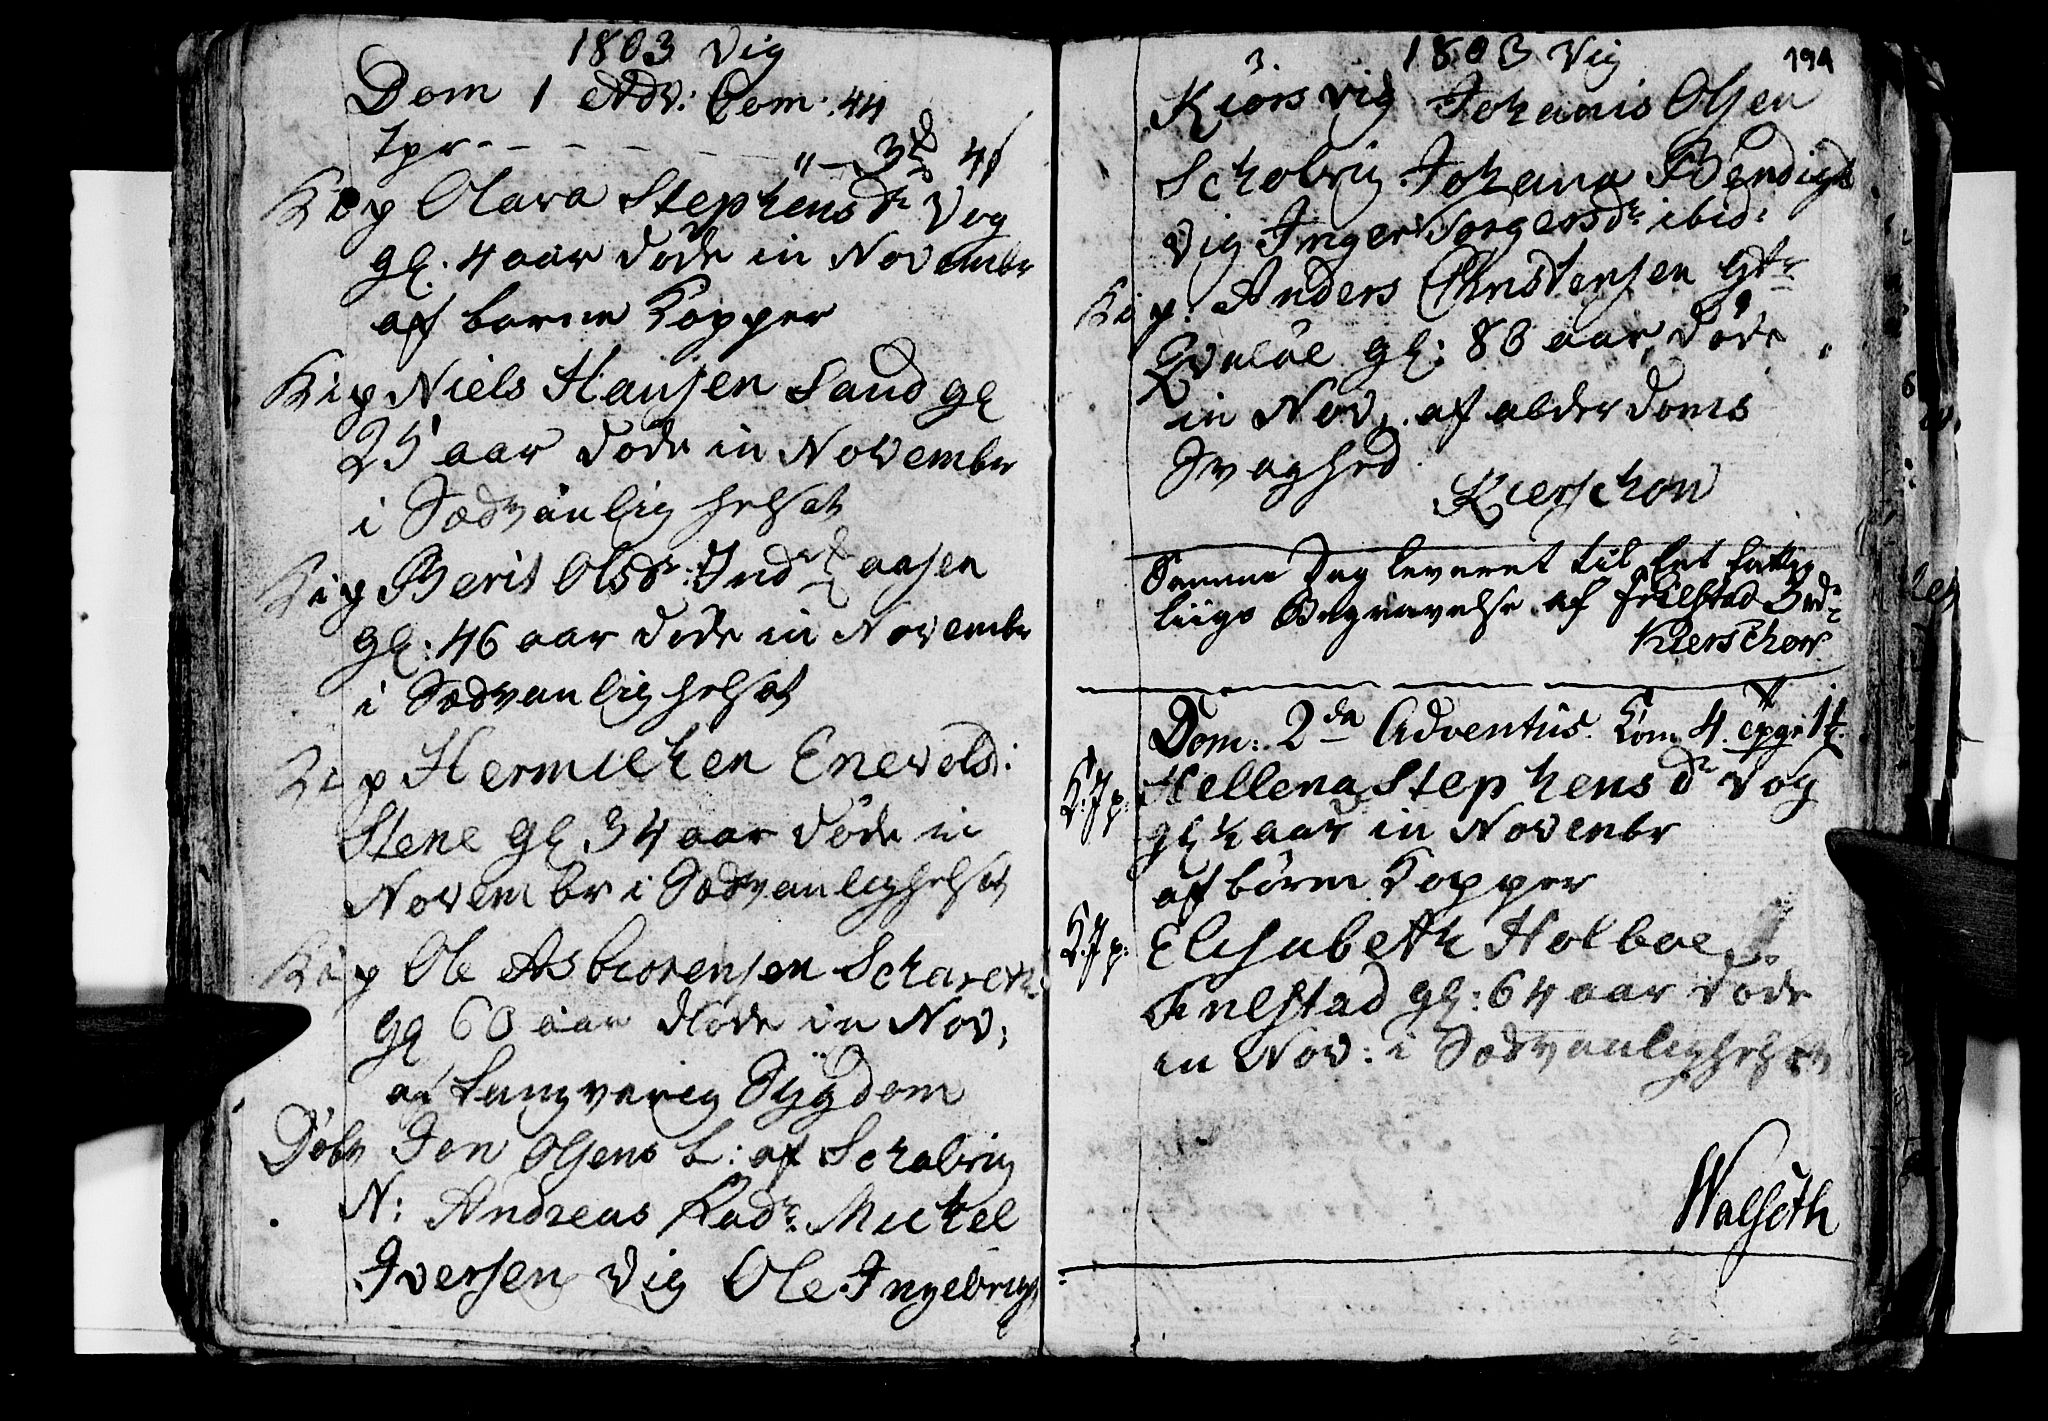 1803 Vig
Dom 1 Adv: Com: 44
Tpr - - - - - " - 3 4 s
K i p Olava Stephensdr Vog
gl. 4 aar døde in November
af børne Kopper
K i p Niels Hansen Sand gl
25 aar døde in November
i Sædvanlig helset
K i p Berit Olsdr: Ind Laasen
gl: 46 aar døde in Novembr
i Sædvanlig helset
K i p Hermichen Enevolds:
Stene gl 34 aar døde in
Novembr i Sædvanlig helset
K i p Ole Asbiørensen Schareth
gl 60 aar døde in Nov:
af Langverig Sygdom
Døbt Jon Olsens b: af Schalvig
N: Andreas Fadr: Mickel
Iversen Vig Ole Ingebrigts
3. 1803 Vig 194
Kiörsvig Johanis Olsen
Schalvig Johana Bendigts
Vig Inger Torgersdr ibid:
K i p: Anders Christensen
Qvaløe gl: 83 aar døde
in Nov: af alderdoms
Svaghed.
Kierschow
Samme Dag leveret til
liige Begravelse af Frilstad 3
Kierschow
Dom: 2da Adventus. Kom 4.
K: J p: Hellena Stephensdr Vog
gl aar in Novembr
af börne Kopper
K: J p: Elisabeth Holboe
Frilstad gl: 64 aar døde
in Nov: i Sædvanlig helset
Walseth